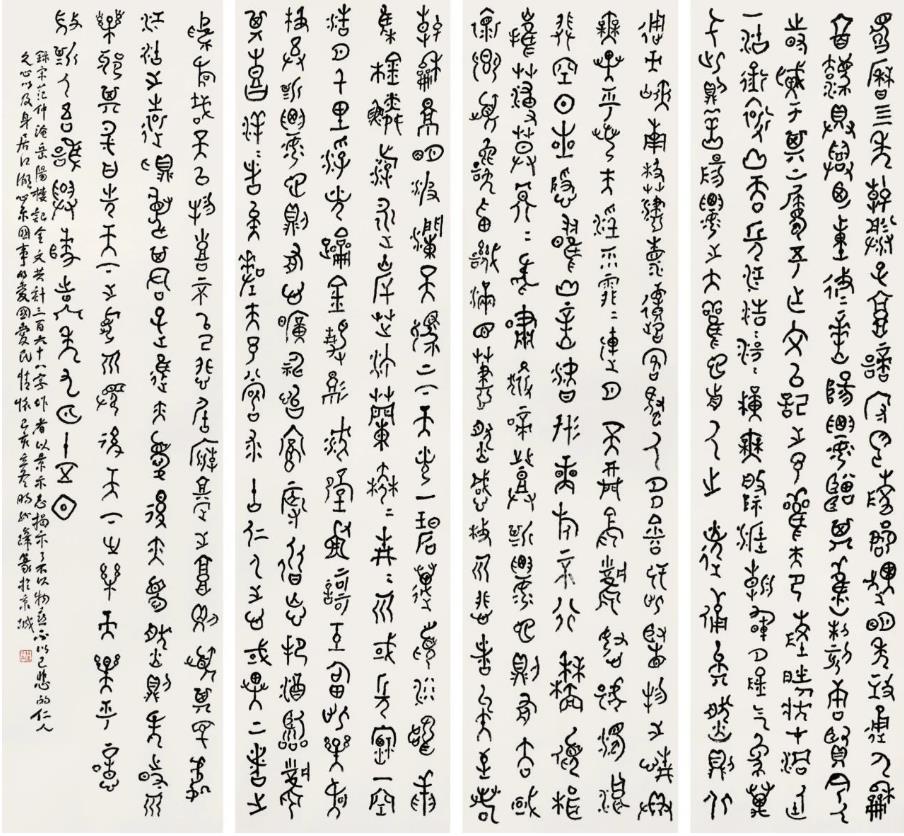 慶曆四年春滕子京謫守巴陵郡越明年政通人和
百廢具興乃重修岳陽樓增其舊制刻唐賢今人
詩賦于其上屬予作文以記之予觀夫巴陵勝狀在洞庭
一湖銜遠山吞長江浩浩湯湯橫無際涯朝暉夕陰氣象萬
千此則岳陽樓之大觀也前人之述備矣然則北
通巫峽南極瀟湘遷客騷人多會于此覽物之情得
無異乎若夫霪雨霏霏連月不開陰風怒號濁浪
排空日星隱曜山岳潛形商旅不行檣傾楫
摧薄暮冥冥虎嘯猿啼登斯樓也則有去國
懷鄉憂讒畏譏滿目蕭然感極而悲者矣至若
春和景明波瀾不驚上下天光一碧萬頃沙鷗翔
集錦鱗游泳岸芷汀蘭郁郁青青而或長煙一空
皓月千里浮光躍金靜影沉璧漁歌互答此樂何
極登斯樓也則有心曠神怡寵辱偕忘把酒臨風
其喜洋洋者矣嗟夫予嘗求古仁人之心或異二者之
為何哉不以物喜不以己悲居廟堂之高則憂其民處
江湖之遠則憂其君是進亦憂退亦憂然則何時而
樂耶其必曰先天下之憂而憂後天下之樂而樂乎噫
微斯人吾誰與歸時六年九月十五日
錄宋范仲淹岳陽樓記全文共計三百六十八字作者以景示志揭示了不以物喜不以己悲的仁人
之心以及身居江湖心系國事的愛國愛民情懷己亥孟春篆於京城